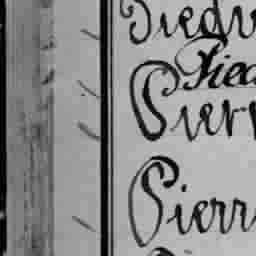 Piedr
Pied
Pierr
Pierr